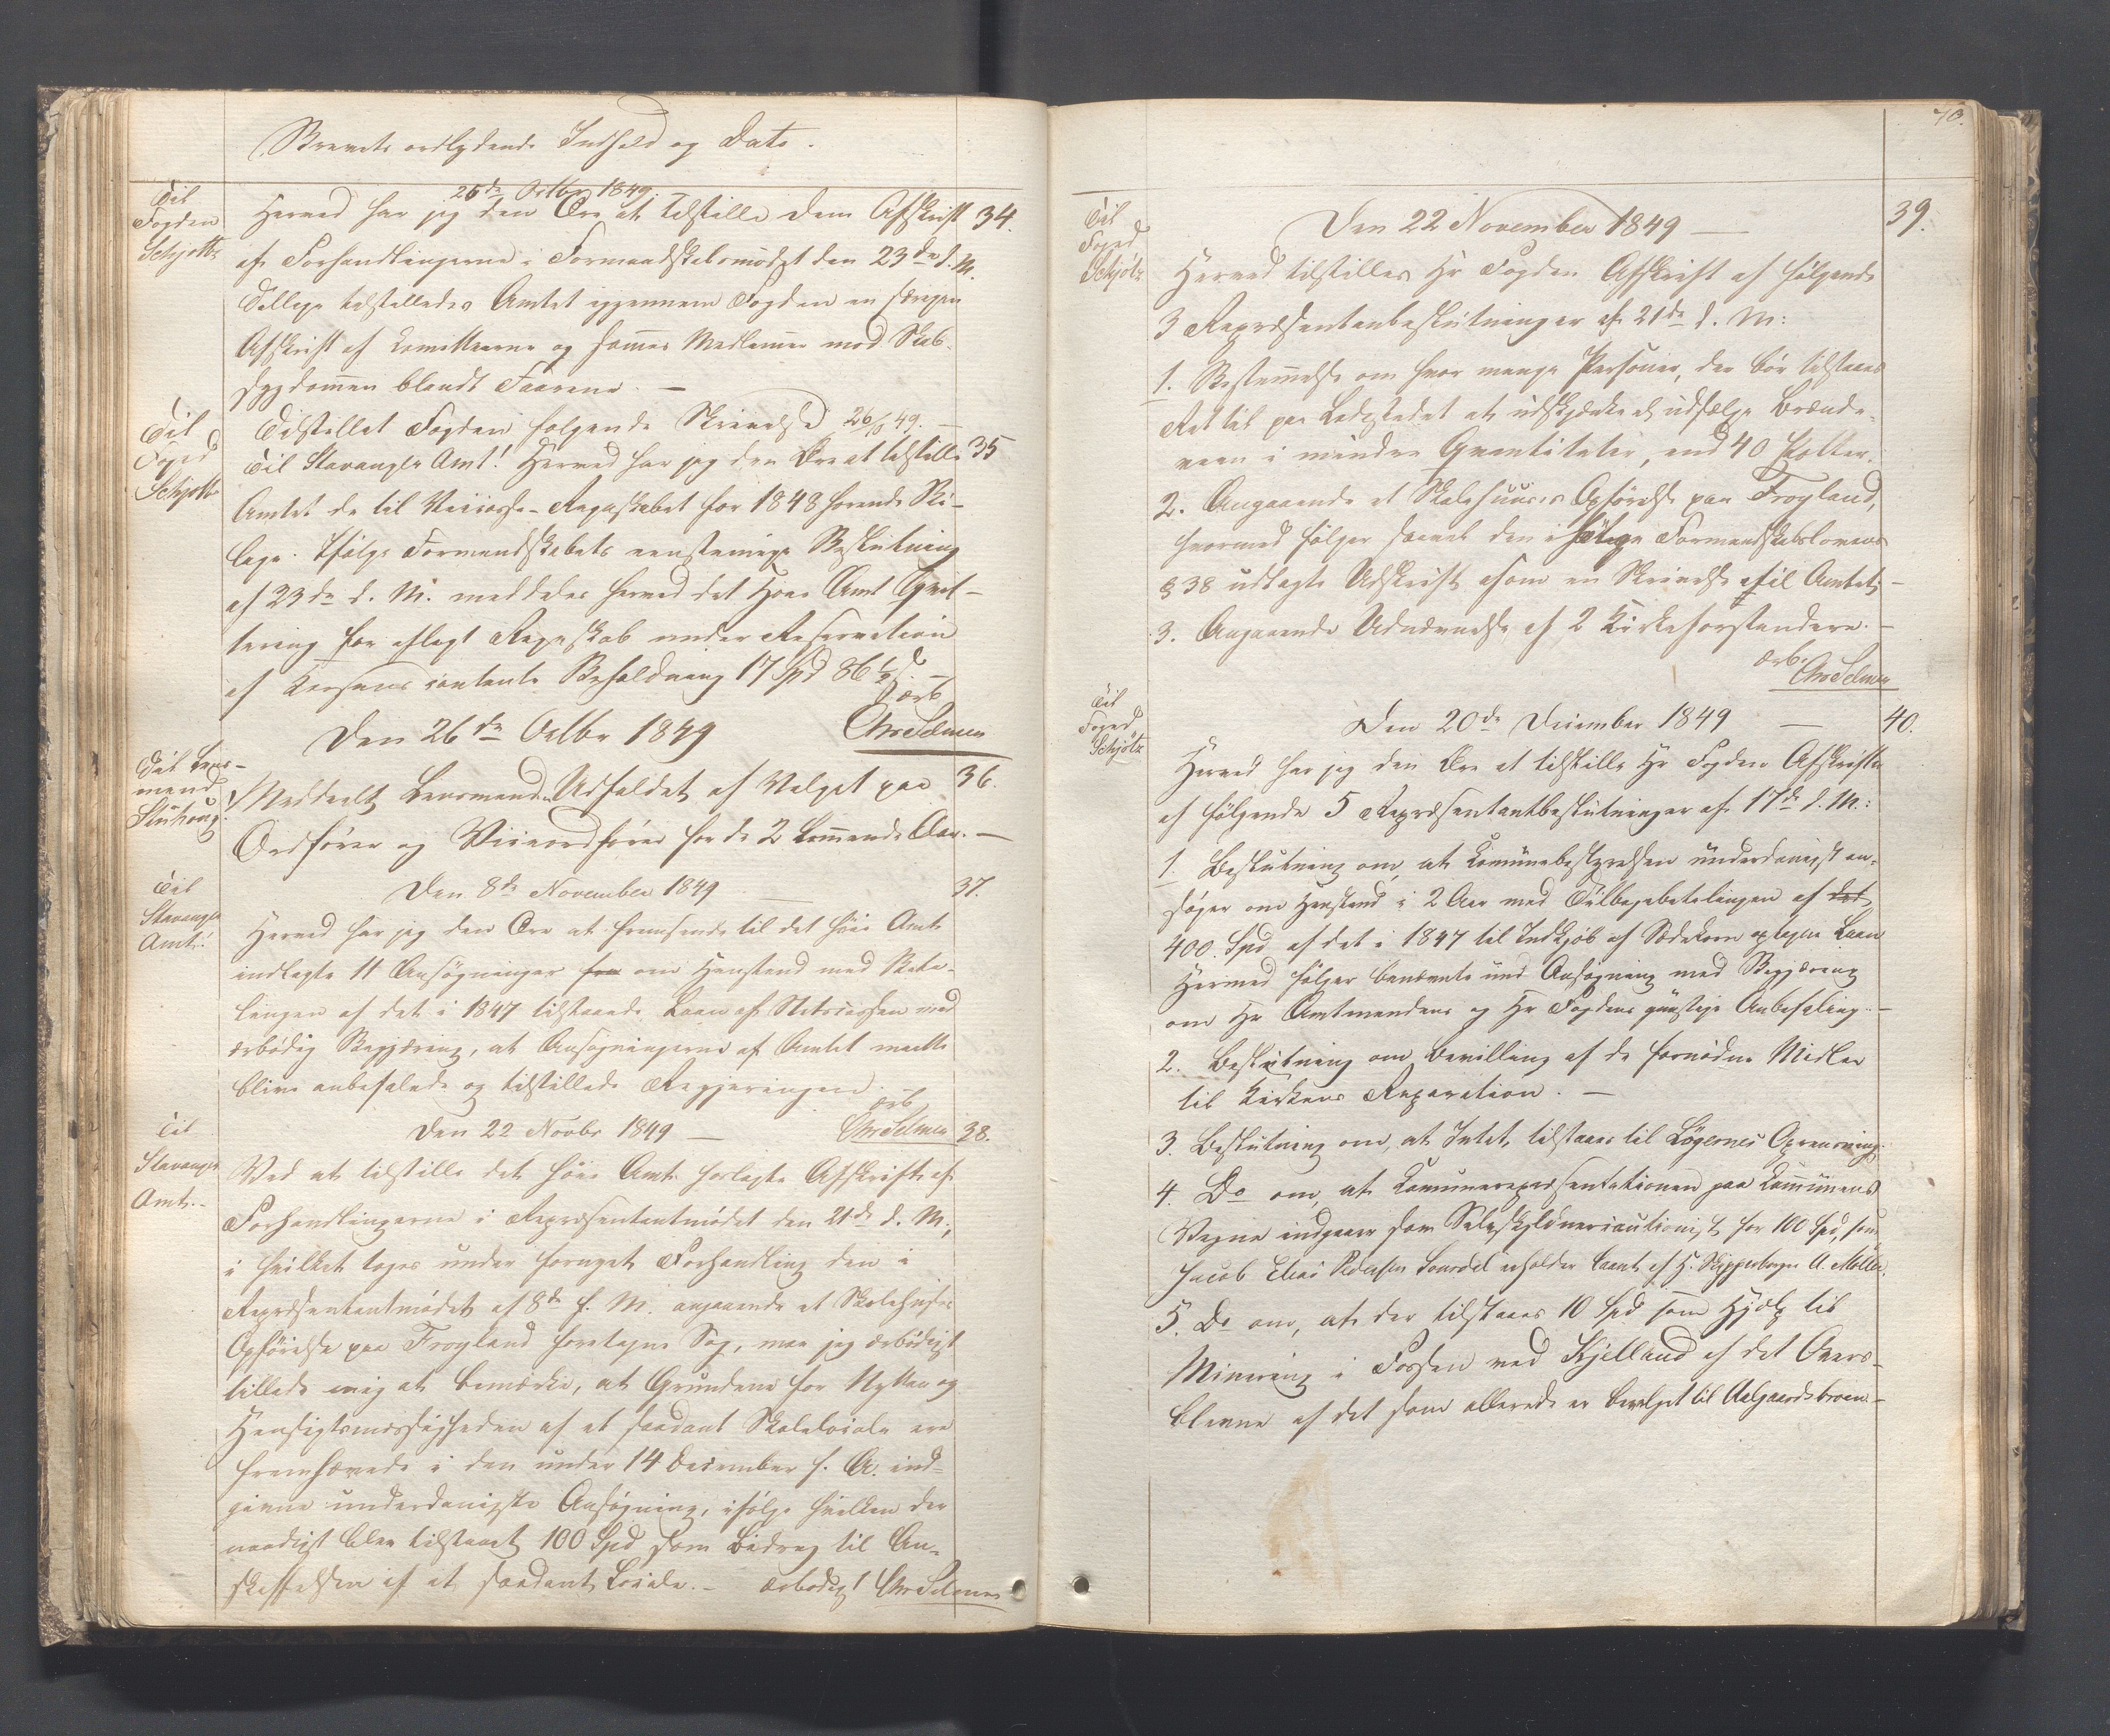 Brevets ordlydende Indhold og Dato.
Til
Fogden
Schjøtz
26de Octbr 1849.
Herved har jeg den Ære at tilstille Dem Afskrift 34.
af Forhandlingerne i Formandskabsmødet den 23de d. M.
Tillige tilstilledes Amtet igjennem Fogden en særegen
Afskrift af Komitteerne og sammes Medlemmer mod Skab-
sygdommen blandt Faarene. —
Til
Foged
Schjøtz
Tilstillet Fogden følgende Skrivelse 26/10 49. —
Til Stavanger Amt! Herved har jeg den Ære at tilstille 35
Amtet de til Veicasse-Regnskabet for 1848 hørende Bi-
lage. Ifølge Formandskabets eenstemmige Beslutning
af 23de d. M. meddeles herved det Høie Amt Qvit-
tering for aflagt Regnskab under Reservation
af Kassens contante Beholdning 17 Spd 86½ s. —
ærb
Chr Selmer
Den 26de Octbr 1849
Til Lens-
mand
Meddeelt Lensmanden Udfaldet af Valget paa 36.
Ordfører og Viceordfører for de 2 kommende Aar. —
Til
Stavanger
Amt!
Den 8de November 1849 — 37.
Herved har jeg den Ære at fremsende til det høie Amt
indlagte 11 Ansøgninger fra om Henstand med Beta-
lingen af det i 1847 tilstaaede Laan af Statscassen med
ærbødig Begjæring, at Ansøgningerne af Amtet maatte
blive anbefalede og tilstillede Regjeringen.
ærb
Chr Selmer
Til
Stavanger
Amt. -
Den 22 Novbr 1849 — 38.
Ved at tilstille det høie Amt forlagte Afskrift af
Forhandlingerne i Repræsentantmødet den 21de d. M.,
i hvilket toges under fornyet Forhandling den i
Repræsentantmødet af 8de f. M. angaaende et Skolehuses
Opførelse paa Frøyland foretagne Sag, maa jeg ærbødigst
tillade mig at bemærke, at Grundene for Nytten og
Hensigtsmæssigheden af et saadant Skolelocale ere
fremhævede i den under 14 December f. A. ind-
givne underdanigste Ansøgning, ifølge hvilken der
naadigst blev tilstaaet 100 Spd som Bidrag til An-
skaffelsen af et saadant Locale. - ærbødigst Chr Selmer
70.
Til
Foged
Schjøtz
Den 22 November 1849 — 39.
Herved tilstilles Hr Fogden Afskrift af følgende
3 Repræsentantbeslutninger af 21de d. M:
1. Bestemmelse om hvor mange Personer, der bør tilstaaes
Ret til paa Ladestedet at udskjænke og udsælge Brænde-
viin i mindre Qvantiteter, end 40 Potter.
2. Angaaende et Skolehuuses Opførelse paa Frøyland,
hvormed følger saavel den ifølge Formandskabslovens
§ 38 udlagte Udskrift som en Skrivelse til Amtet;-
3. Angaaende Udnævnelse af 2 Kirkeforstandere. —
ærb.
Chr Selmer
Til
Foged
Schjøtz
Den 20de December 1849 — 40.
Herved har jeg den Ære at tilstille Hr Fogden Afskrifter
af følgende 5 Repræsentantbeslutninger af 17de d. M.:
1. Beslutning om, at Communebestyrelsen underdanigst an-
søger om Henstand i 2 Aar med Tilbagebetalingen af det
400. Spd af det i 1847 til Indkjøb af Sædekorn optagne Laan
Hermed følger benævnte und Ansøgning med Begjæring
om Hr Amtmandens og Hr Fogdens gunstige Anbefaling. —
2. Beslutning om Bevilling af de fornødne Midler
til Kirkens Reparation. —
3. Beslutning om, at Intet tilstaaes til Løgernes Oprensning.
4. Do om, at Communerepræsentationen paa Communens
Vegne indgaaer som Selvskyldnercautionist for 100 Spd, som
Jacob Elias Pedersen erholder laant af H. Skipperborger A. Møller.
5. Do om, at der tilstaaes 10 Spd som Hjælp til
Minering i Fossen ved Kjelland af det Overs-
blevne af det som allerede er bevilget til Aalgaardsbroen. —